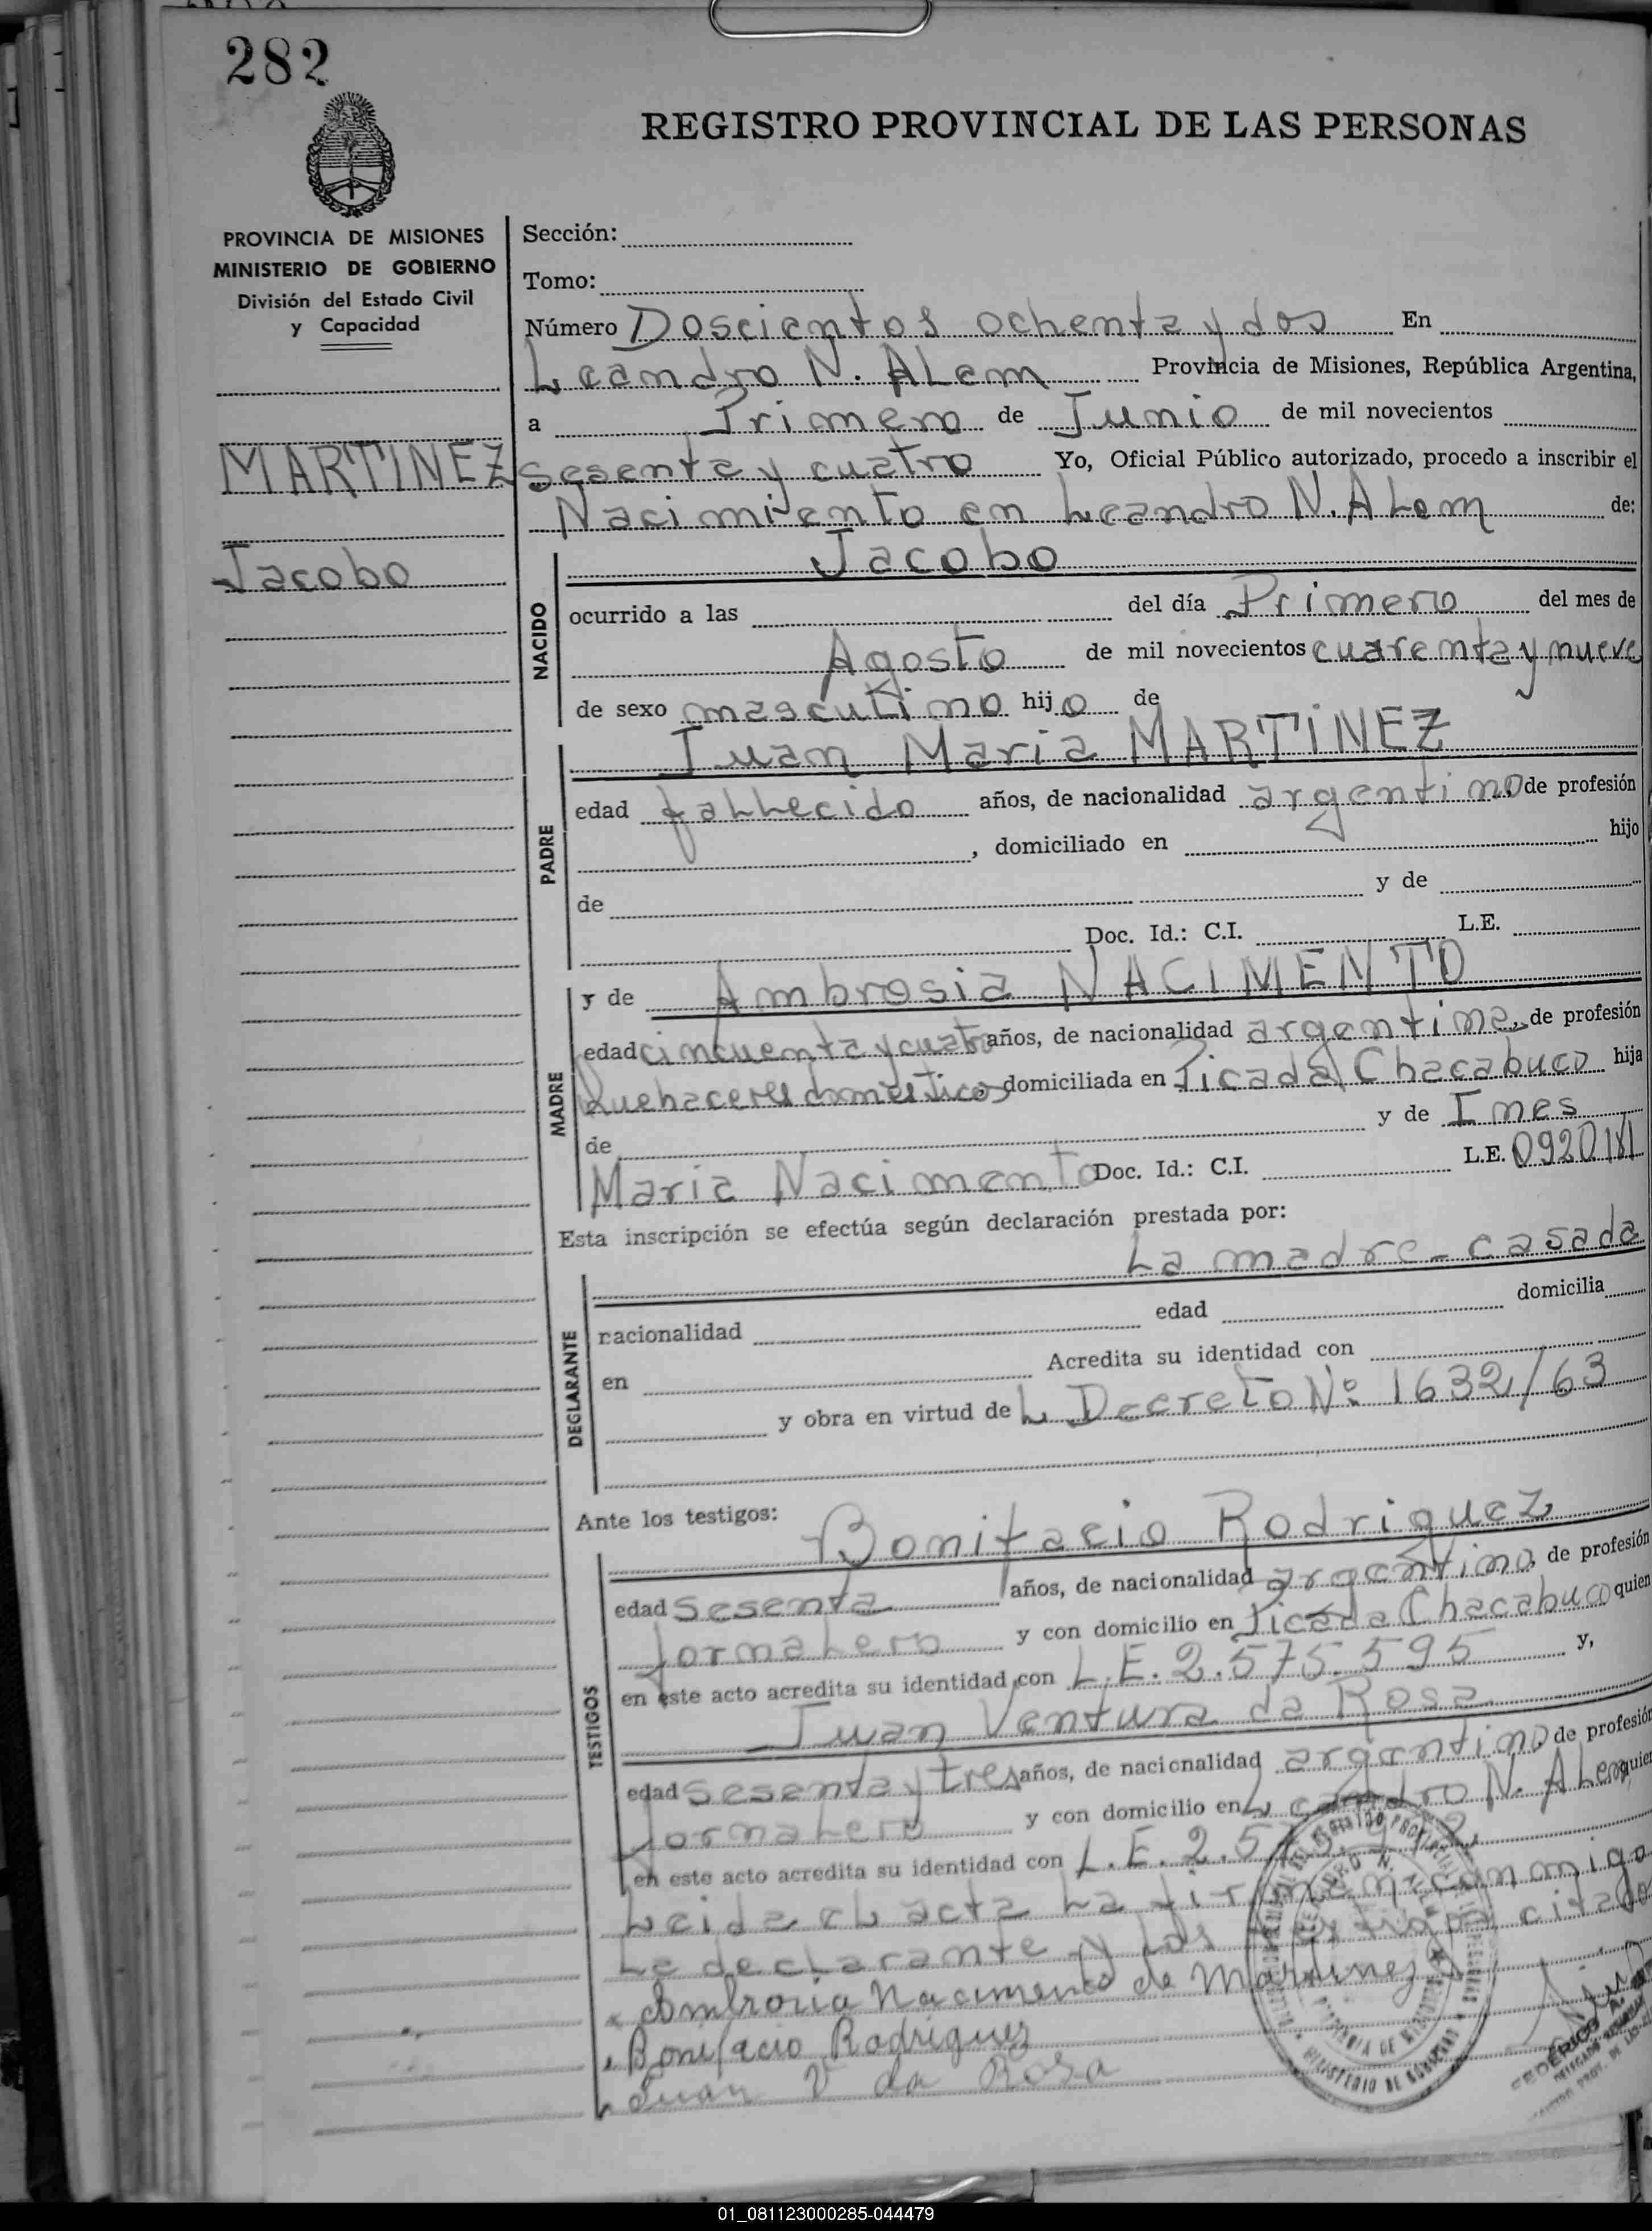 282
REGISTRO PROVINCIAL DE LAS PERSONAS
PROVINCIA DE MISIONES
MINISTERIO DE GOBIERNO
División del Estado Civil
y Capacidad
MARTINEZ
Jacobo
Sección:
Tomo:
Número Doscientos ochenta y dos En
Leandro N. ALem Provincia de Misiones, República Argentina,
a Primero de Junio de mil novecientos
sesenta y cuatro Yo, Oficial Público autorizado, procedo a inscribir el
Nacimiento en Leandro N. ALem de:
NACIDO
Jacobo
ocurrido a las del día Primero del mes de
Agosto de mil novecientos cuarenta y nueve
de sexo masculino hijo de
PADRE
Juan Maria MARTINEZ
edad fallecido años, de nacionalidad argentino de profesión
, domiciliado en hijo
de y de
Doc. Id.: C.I. L.E.
MADRE
y de Ambrosia NACIMENTO
edad cincuenta y cuatro años, de nacionalidad argentina, de profesión
Quehaceres domésticos domiciliada en Picada Chacabuco hija
de y de Ines
Maria Nacimento Doc. Id.: C.I. L.E.
Esta inscripción se efectúa según declaración prestada por:
DECLARANTE
La madre - casada
nacionalidad edad domicilia
en Acredita su identidad con
y obra en virtud de L Decreto Nº 1632/63
Ante los testigos:
TESTIGOS
Bonifacio Rodriguez
edad sesenta años, de nacionalidad argentino, de profesión
jornalero y con domicilio en Picada Chacabuco quien
en este acto acredita su identidad con L.E. 2.575.595 y,
Juan Ventura da Rosa
edad sesenta y tres años, de nacionalidad argentino de profesión
jornalero y con domicilio en Leandro N. ALem quien
en este acto acredita su identidad con L.E. 2.57
Leida el acta la firman conmigo
la declarante y los testigos citados
Ambrosia Nacimento de Martinez
Bonifacio Rodriguez
Juan V da Rosa
MINISTERIO DE GOBIERNO
01_081123000285-044479